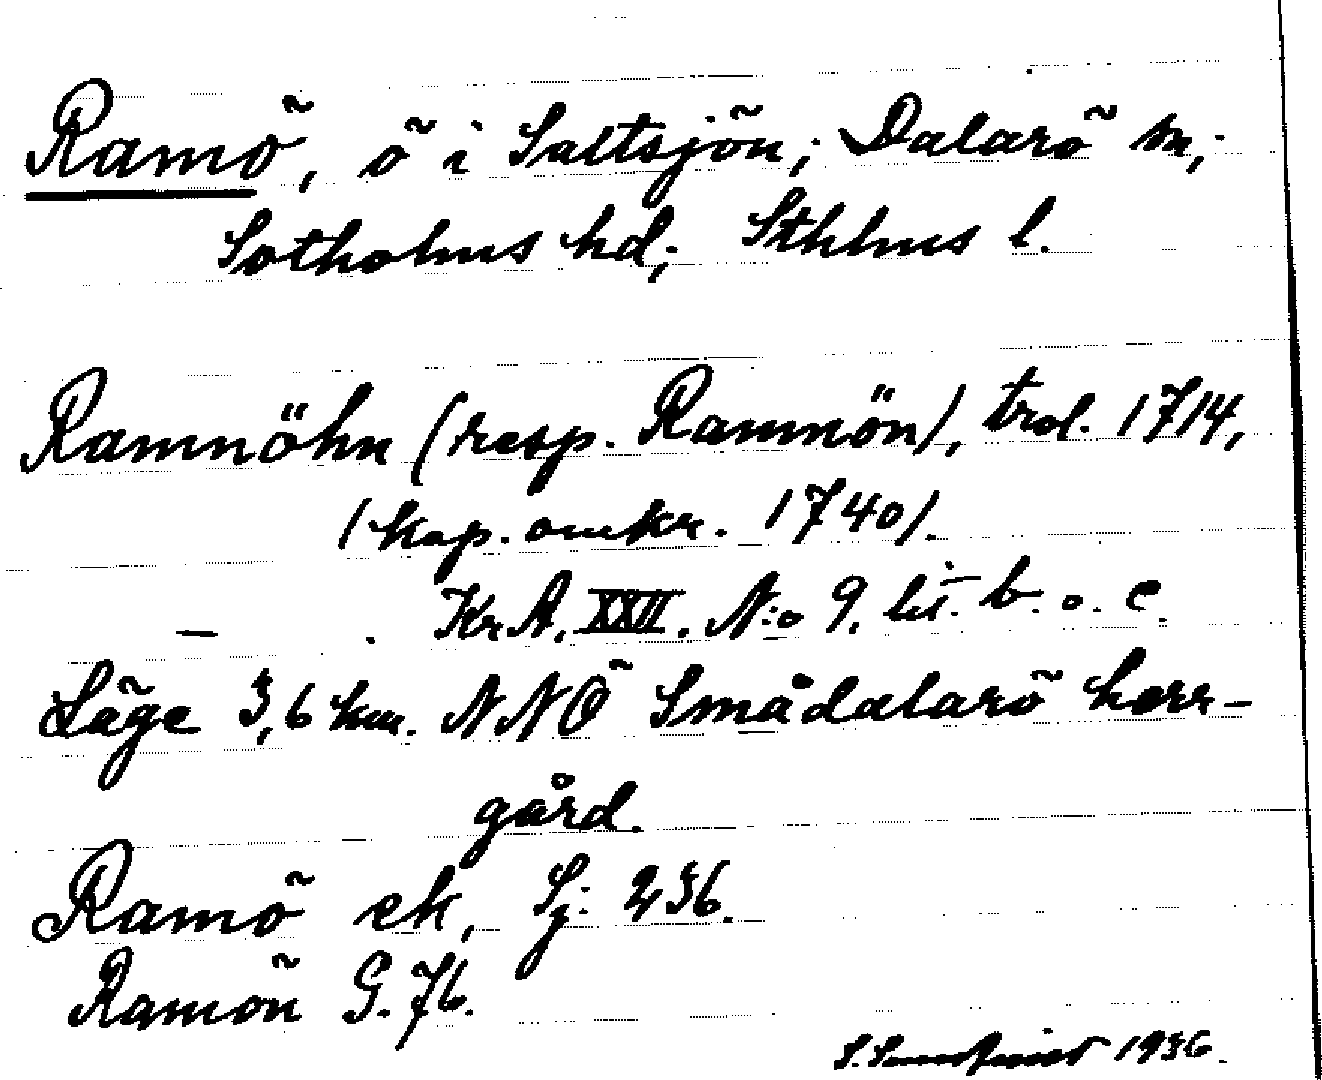 Ramö, ö i Saltsjön; Dalarö sn;
Sotholms hd; Sthlms l.
Ramnöhn (resp. Rammön), trol. 1714,
(kop. omkr. 1740).
— . Kr.A. XXII. N:o 9. lit. b. o. c.
Läge 3,6 km. NNÖ Smådalarö herr-
gård.
Ramö ek, Sj: 236.
Ramön G. 76.
1936.